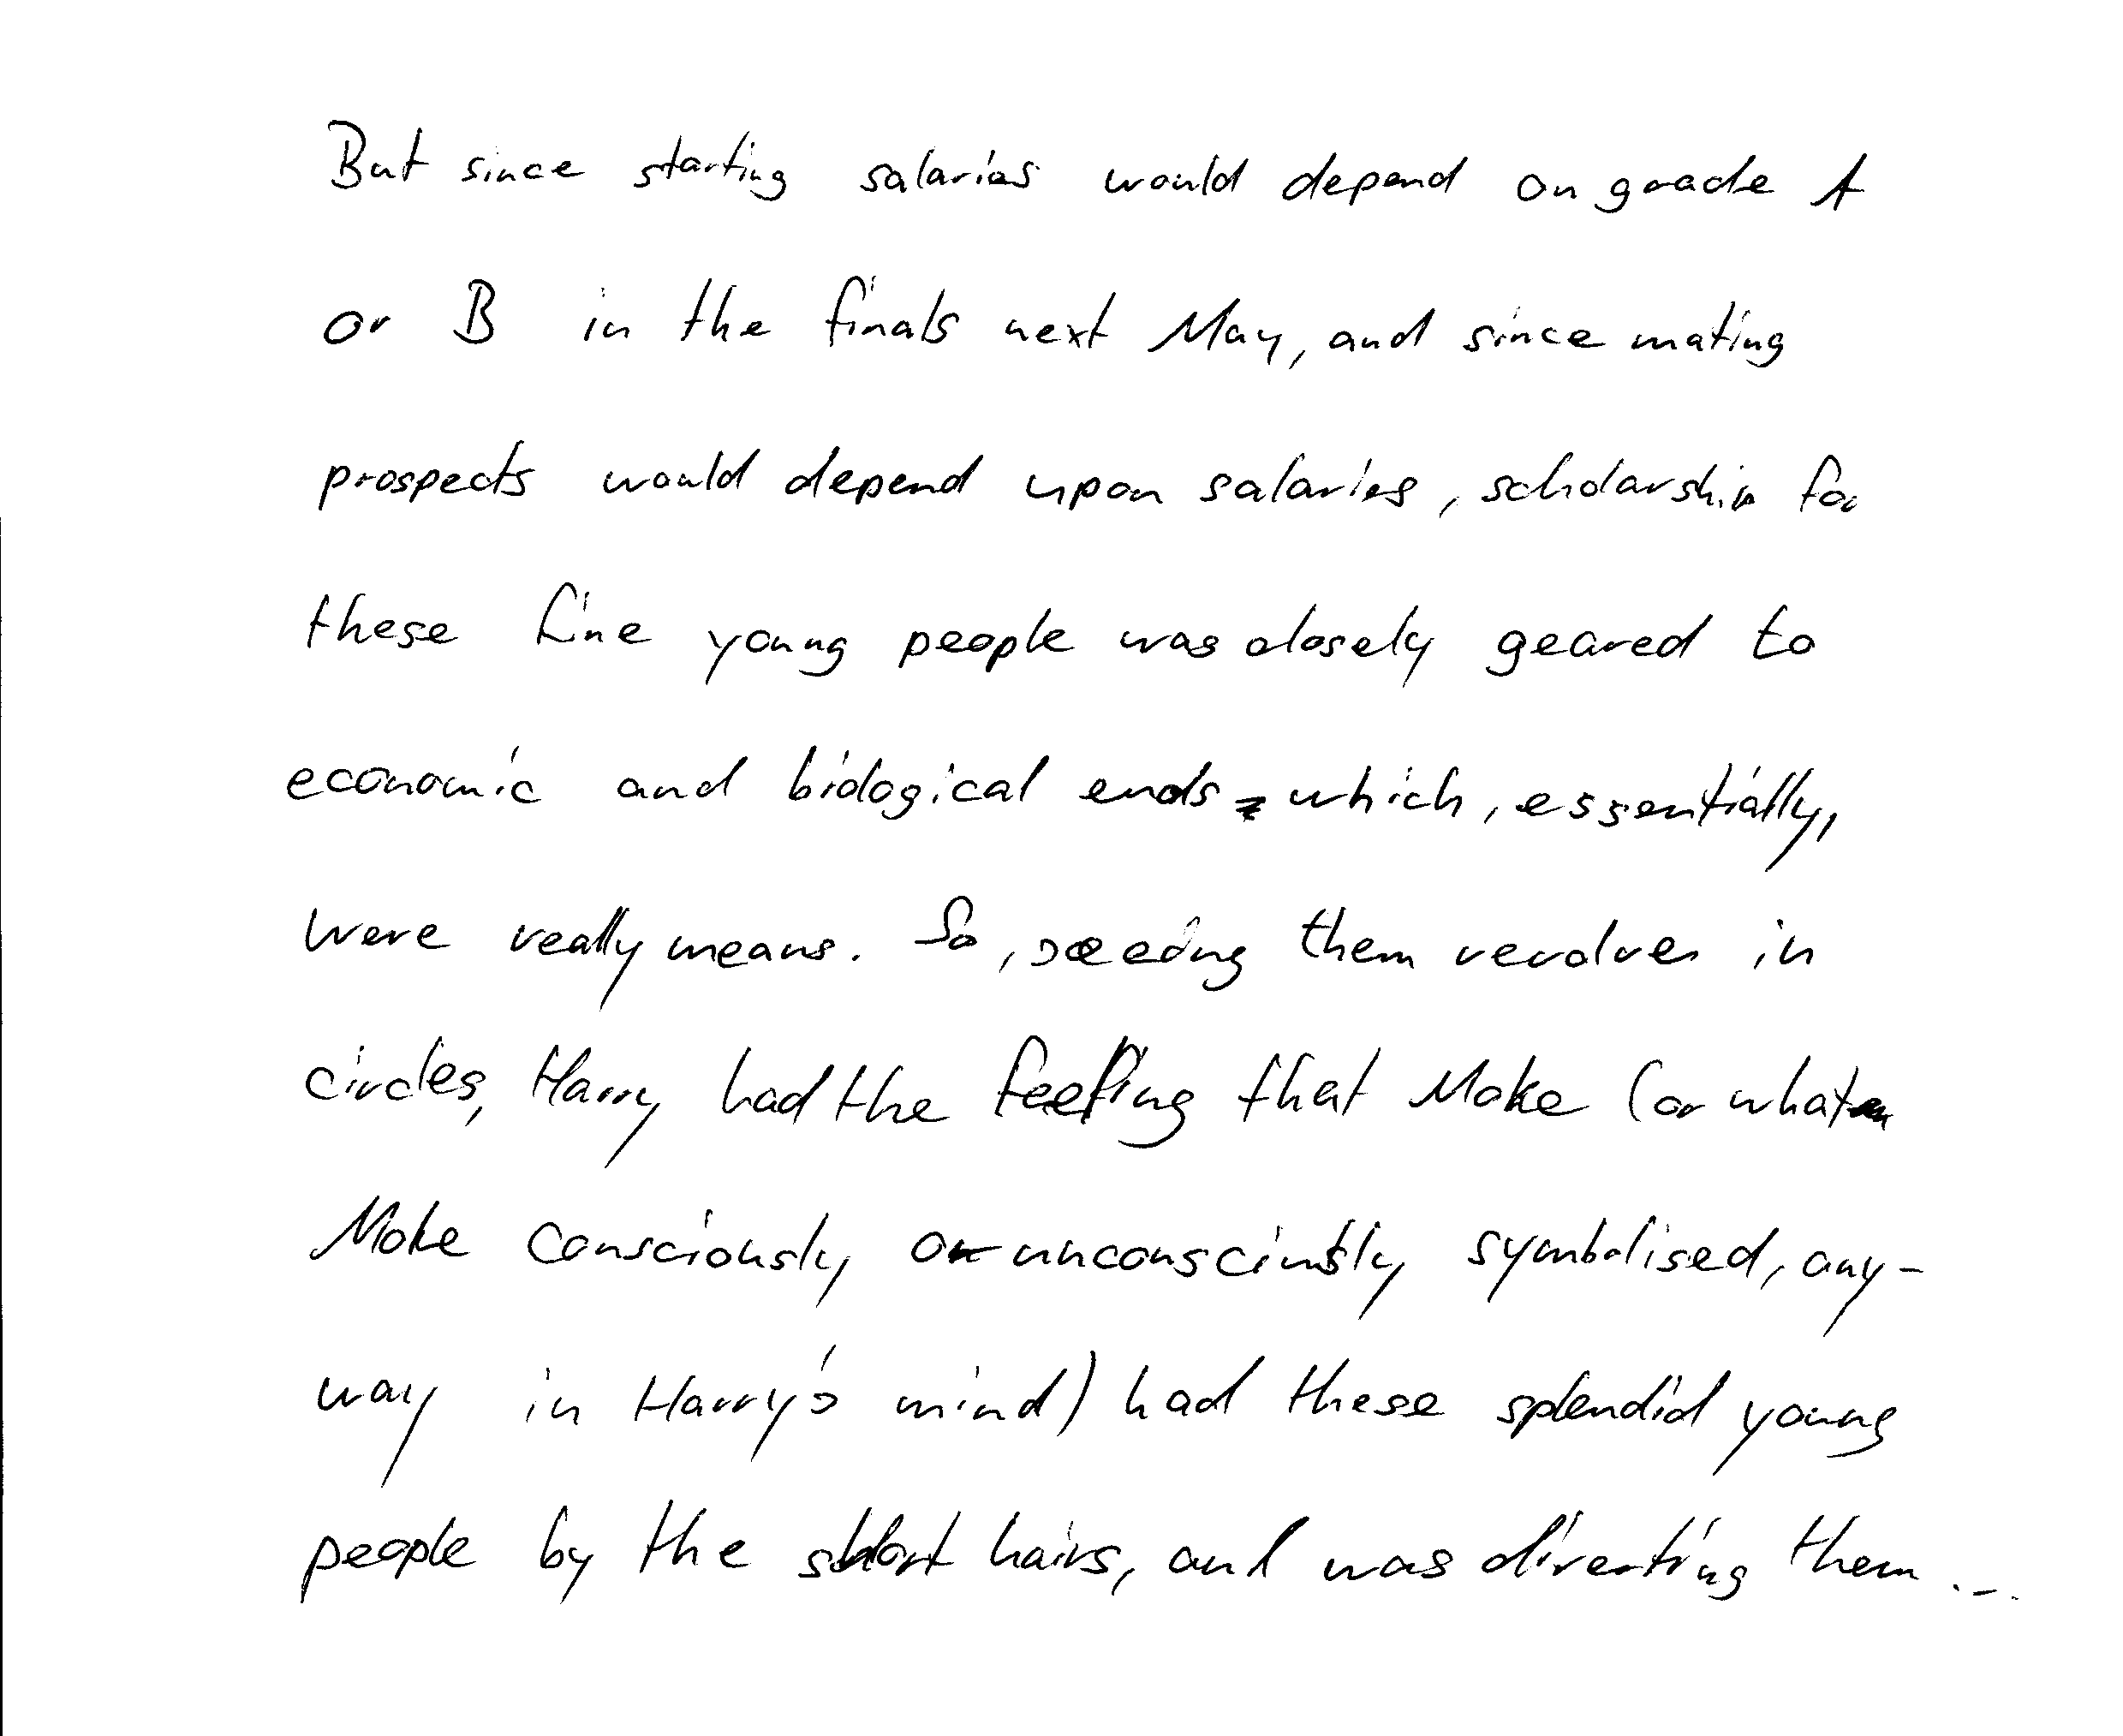 But since starting salaries would depend on grade A
or B in the finals next May, and since mating
prospects would depend upon salaries, scholarship for
these fine young people was closely geared to
economic and biological ends - which, essentially,
were really means. So, seeing them revolve in
circles, Harry had the feeling that Moke (or what
Moke consciously or unconsciously symbolised, any-
way in Harry's mind) had these splendid young
people by the short hairs, and was diverting them...